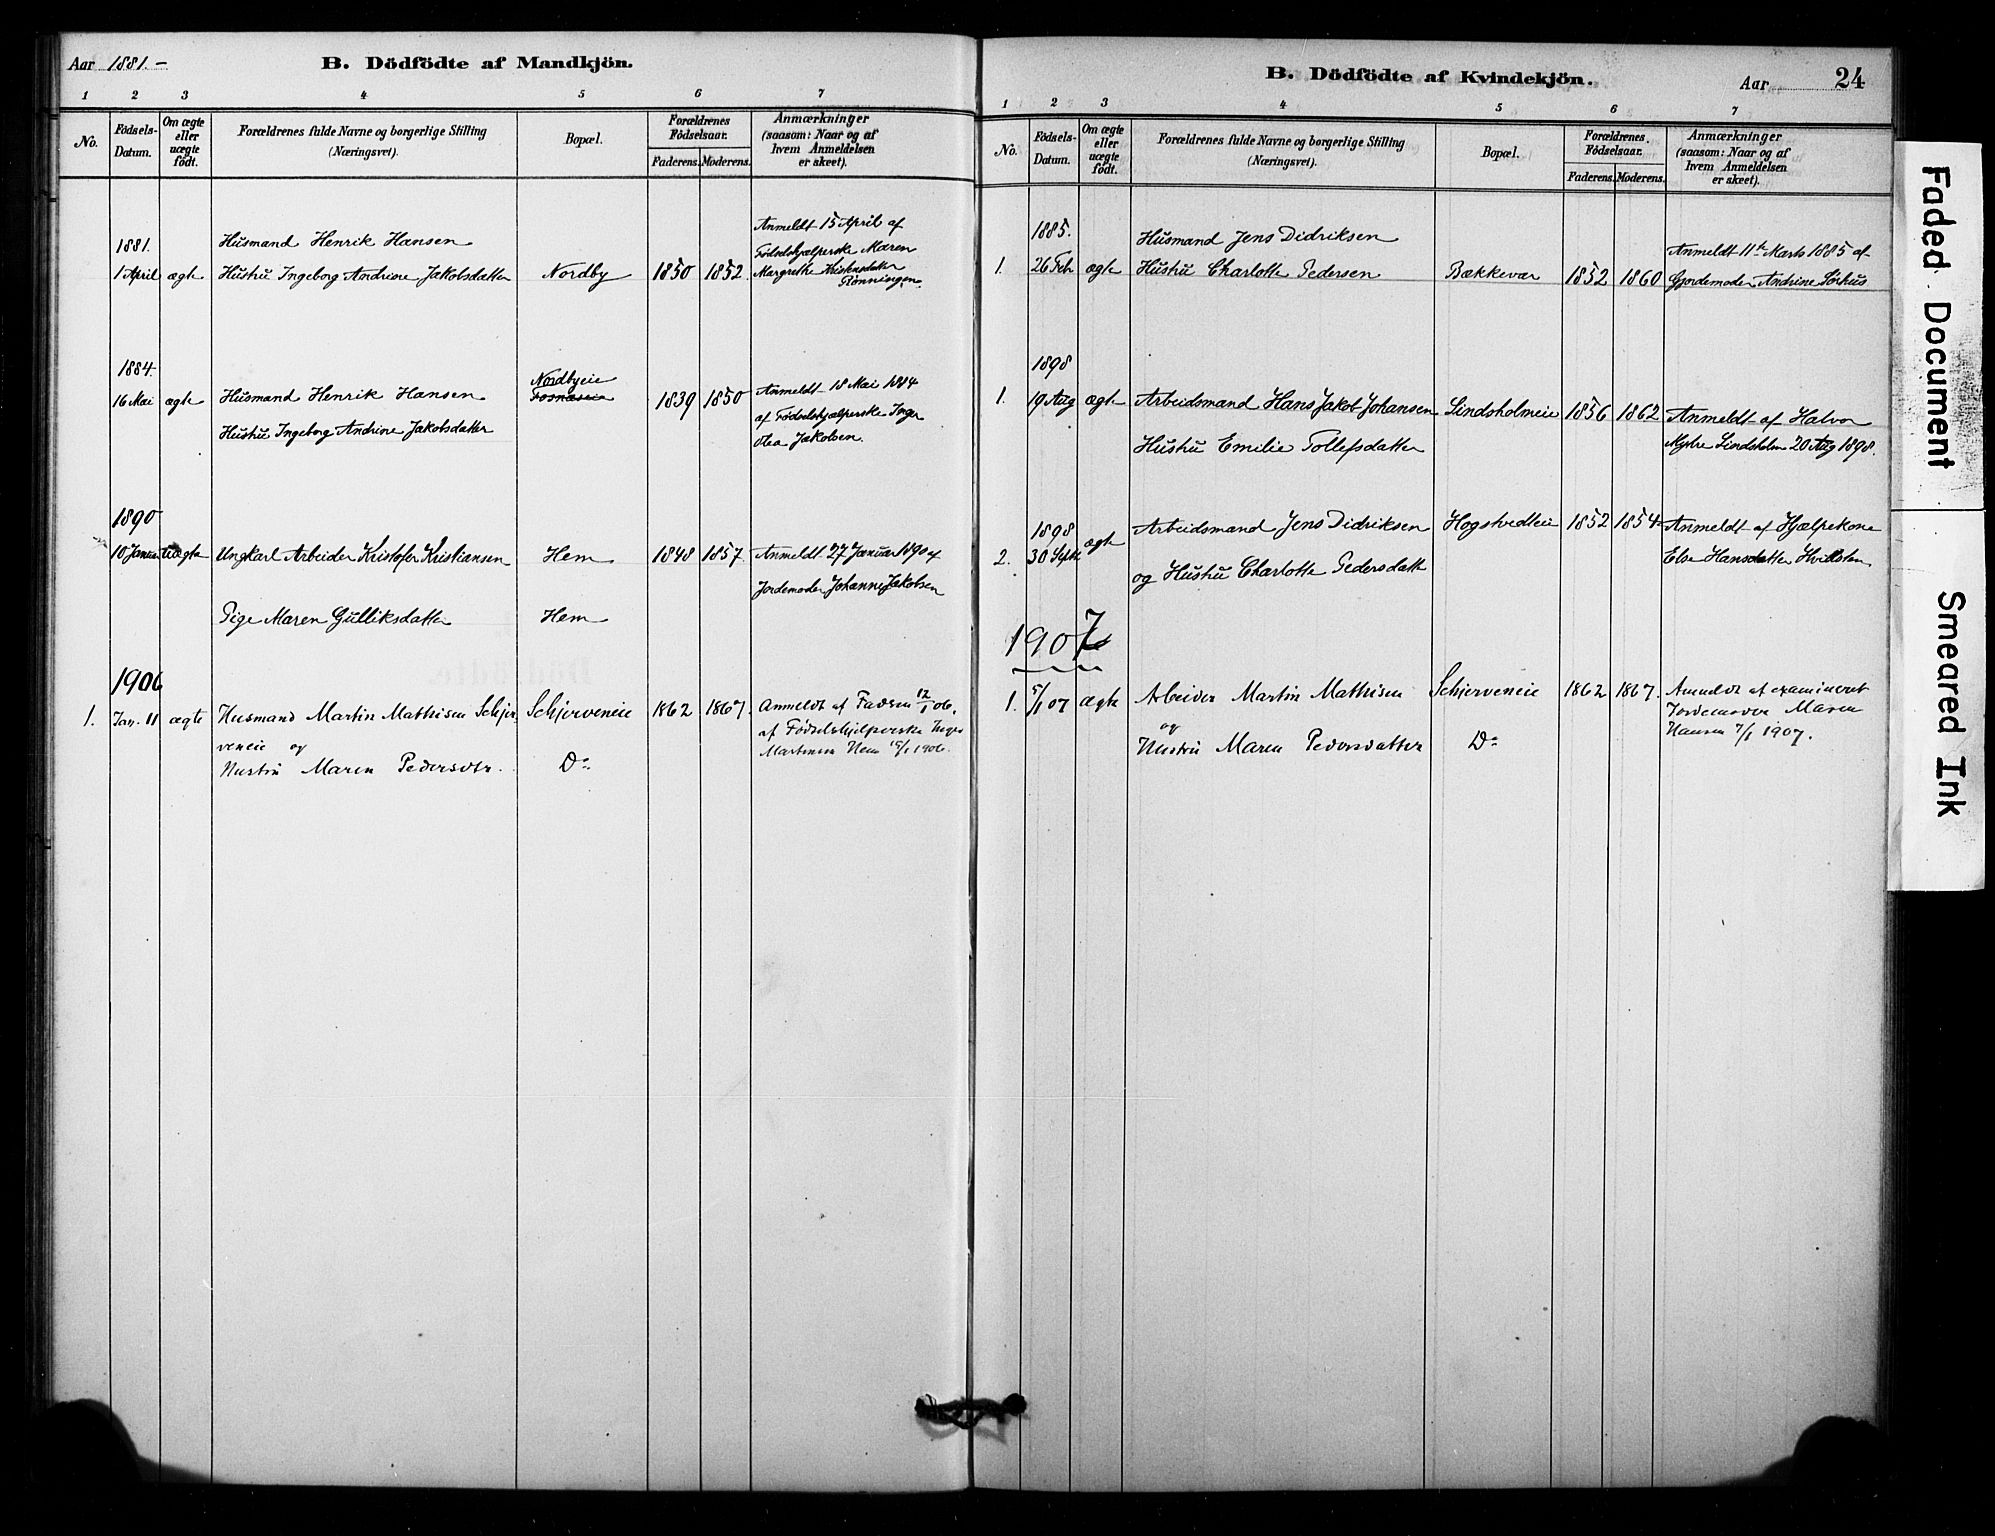 Aar 1881.-
B. Dödfödte af Mandkjön.
1 2 3 4 5 6 7
No.
Födsels-Datum.
Om ægte eller uægte födt.
Forældrenes fulde Navne og borgerlige Stilling (Næringsvei).
Bopæl.
Forældrenes Födselsaar.
Faderens. Moderens.
Anmærkninger (saasom: Naar og af hvem Anmeldelsen er skeet).
1881.
1 April ægte
Husmand Henrik Hansen
Hustru Ingeborg Andrine Jakobsdatter
Nordby 1850 1852.
Anmeldt 15 April af
Fødselshjælperske Maren
Margrethe Kristensdatter
Rønningen.
1884.
16 Mai ægte
Husmand Henrik Hansen
Hustru Ingeborg Andrine Jakobsdatter
Nordbyeie
1839 1850
Anmeldt 18 Mai 1884
af Fødselshjælperske Inger
Olea Jakobsen.
1890
10 Januar uægte
Ungkarl Arbeider Kristofer Kristiansen
Hem 1848 1857.
Anmeldt 27 Januar 1890 af
Jordemoder Johanne Jakobsen
Pige Maren Gulliksdatter
Hem
1906
1. Jan. 11 ægte
Husmand Martin Mathisen Schjer
veneie og
Hustru Maren Pedersdtr.
Schjerveneie
Do
1862 1867.
Anmeldt af Faderen 12/1 06.
af Fødselshjelperske Inger
Martinsen Hem 15/1 1906.
B. Dödfödte af Kvindekjön.
Aar 24
1 2 3 4 5 6 7
No.
Födsels-Datum.
Om ægte eller uægte födt.
Forældrenes fulde Navne og borgerlige Stilling (Næringsvei).
Bopæl.
Forældrenes Födselsaar.
Faderens. Moderens.
Anmærkninger (saasom: Naar og af hvem Anmeldelsen er skeet).
1885.
1. 26 Feb ægte
Husmand Jens Didriksen
Hustru Charlotte Pedersen
Bækkevar 1852 1860
Anmeldt 11te Marts 1885 af
Gjordemoder Andrine Sørhus
1898
1. 19 Aug ægte
Arbeidsmand Hans Jakob Johansen
Hustru Emilie Tollefsdatter
Lindsholmeie 1856 1862
Anmeldt af Halvor
Myhre Lindsholm 20 Aug 1898.
1898
2. 30 Septb ægte
Arbeidsmand Jens Didriksen
og Hustru Charlotte Pedersdatt
Hogstvedteie 1852 1854
Anmeldt af Hjælpekone
Else Hansdatter Hvidsten
1907
1. 5/1 07 ægte
Arbeider Martin Mathisen
og
Hustru Maren Pedersdatter
Schjerveneie
Do
1862 1867.
Anmeldt af examineret
Jordemoder Maren
Hansen 7/1 1907.
Faded Document
Smeared Ink